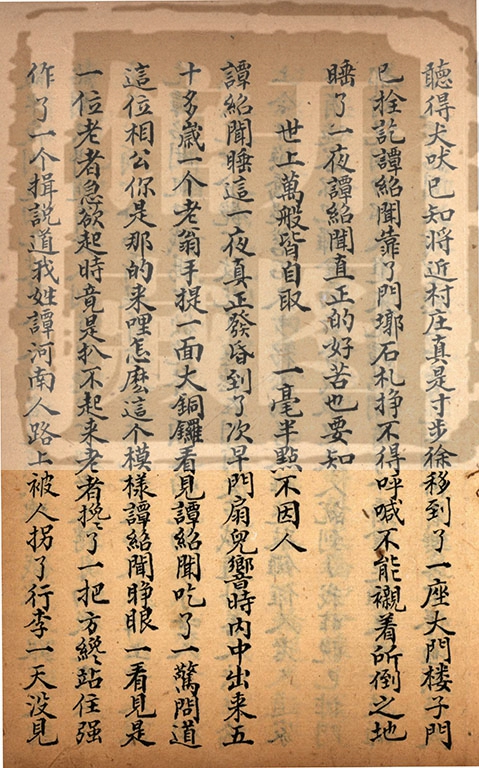 聽得犬吠已知將近村庄真是寸步徐移到了一座大門楼子門
已拴訖譚紹聞靠了門墩石扎掙不得呼喊不能襯着所倒之地
睡了一夜譚紹聞直正的好苦也要知
世上萬般皆自取 一毫半點不因人
譚紹聞睡這一夜真正發昏到了次早門扇兒響時內中出来五
十多歲一个老翁手提一面大銅鑼看見譚紹聞吃了一驚問道
這位相公你是那的来哩怎麽這个模樣譚紹聞睜眼一看見是
一位老者急欲起時竟是扒不起来老者攙了一把方纔站住强
作了一个揖説道我姓譚河南人路上被人拐了行李一天没見